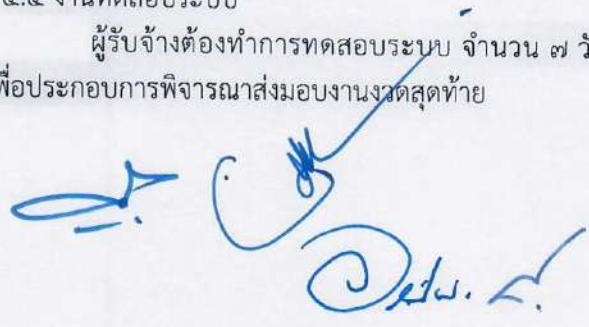 งานทดสอบระบบ
ผู้รับจ้างต้องทำการทดสอบระบบ จำนวน ๗
เพื่อประกอบการพิจารณาส่งมอบงานงวดสุดท้าย